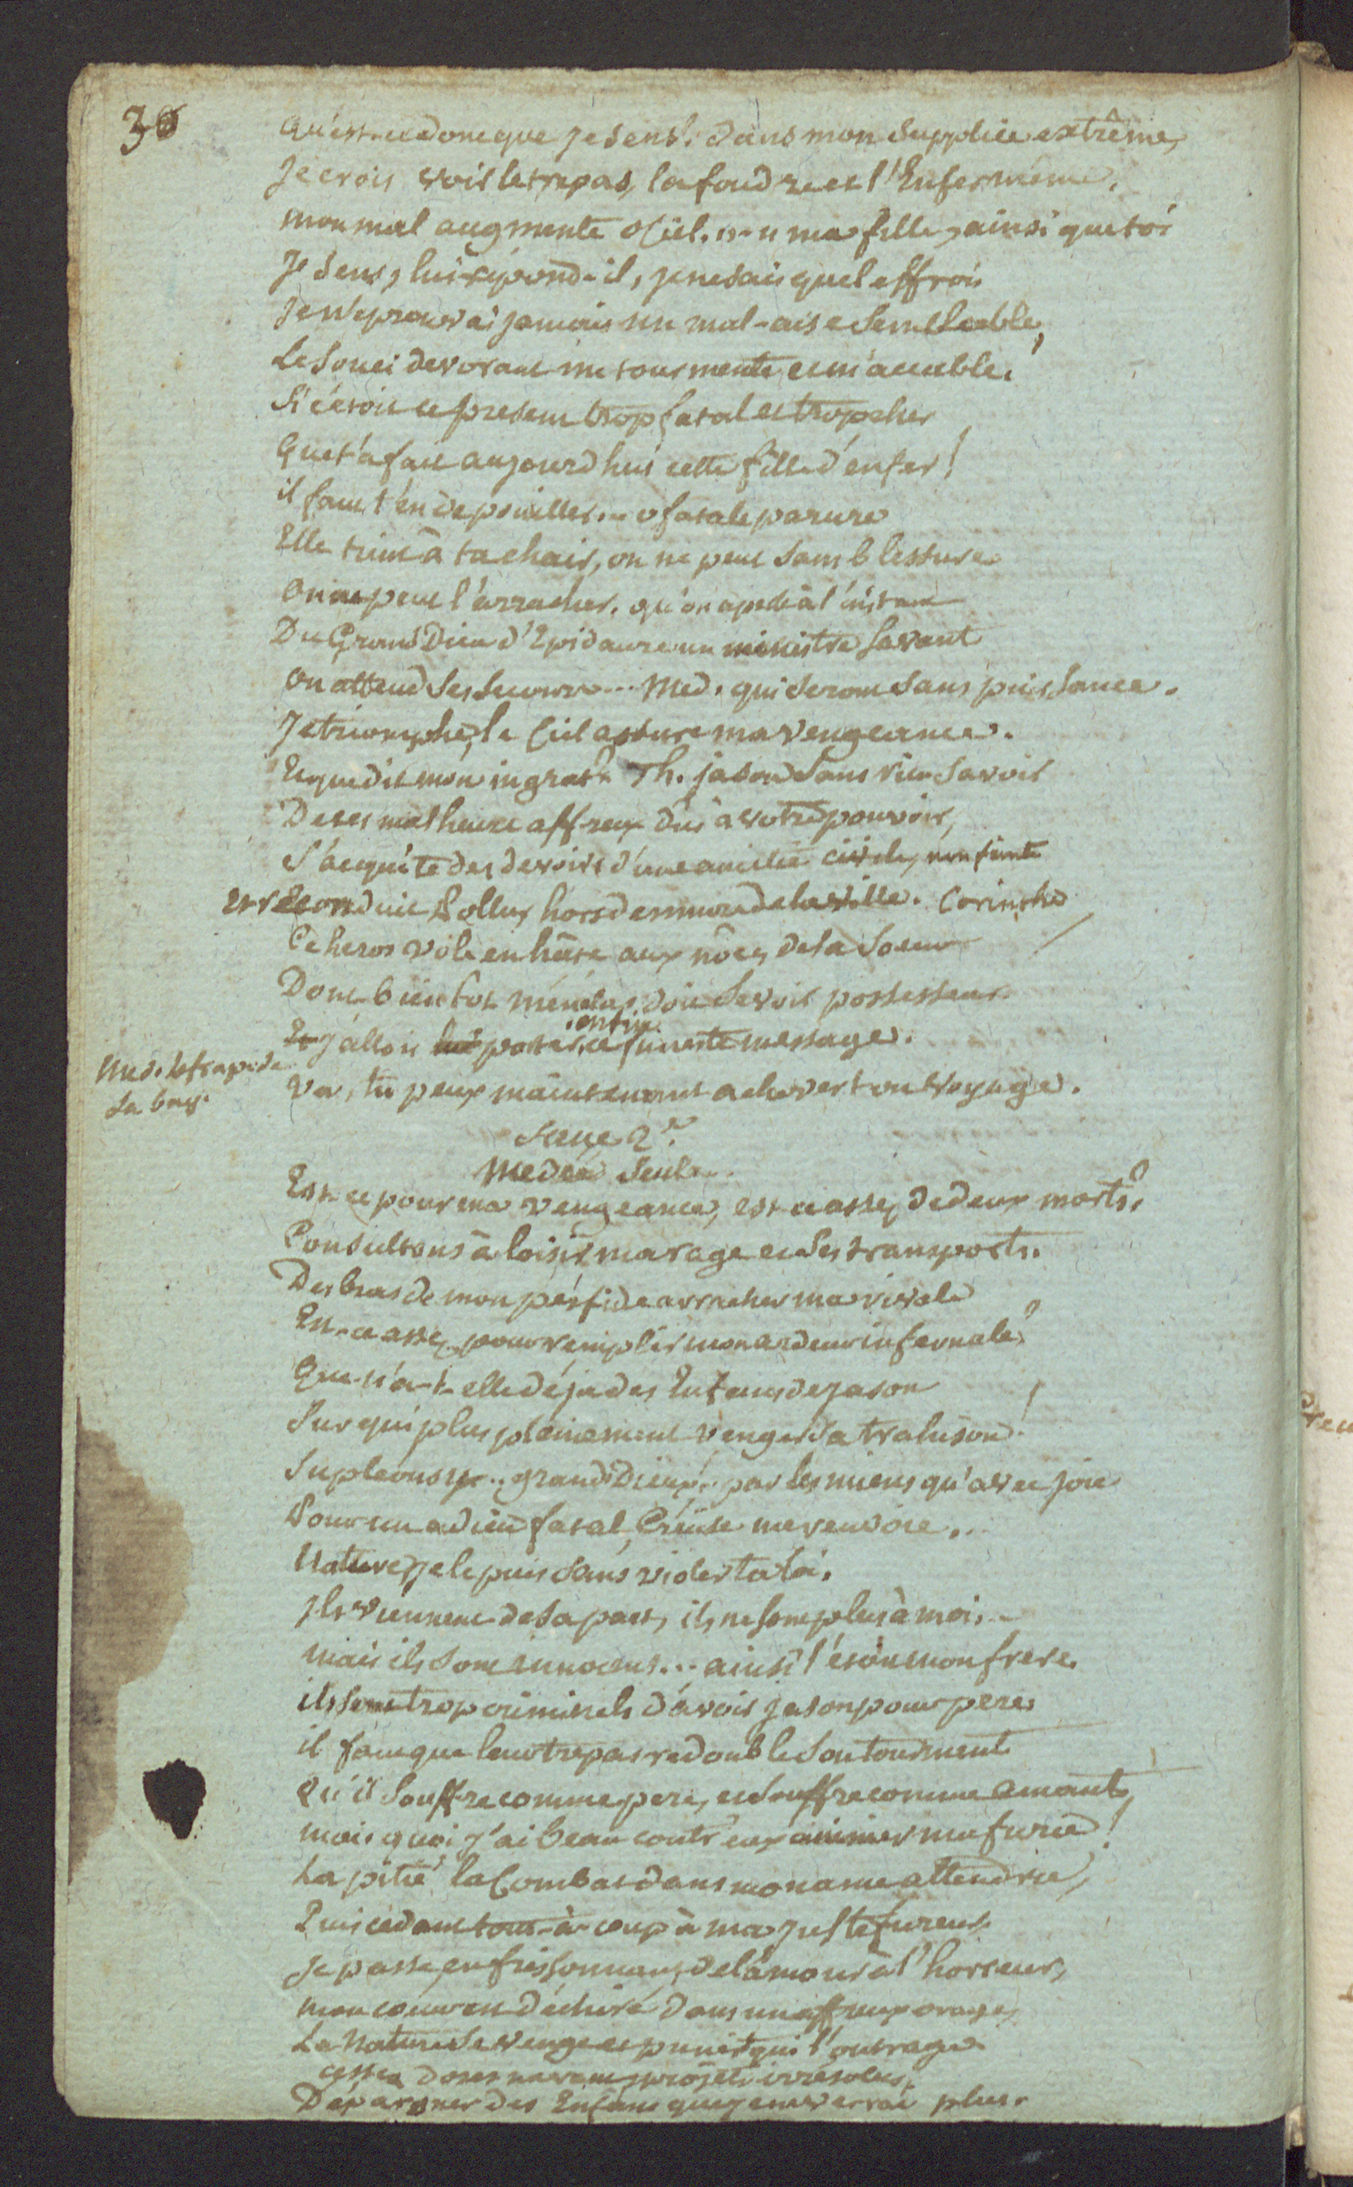 30
Qu'est-ce donc que je sens? dans mon supplice extrême,
Je crois voir le trepas, la foudre et l'Enfer même.
mon mal augmente o Ciel. .. ma fille, ainsi que toi
Je sens, lui répond-il, je ne sais quel effroi
Je n'eprouvai jamais un mal-aise semblable,
Le souci devorant me tourmente et m'accable.
Si c'étoit ce present trop fatal et trop cher
Que t'a fait aujourd'hui cette fille d'enfer!
il faut t'en depouiller... o fatale parure
Elle tient à ta chair, on ne peut sans blessure
On ne peut l'arracher. qu'on apelle à l'instant
Du Grand Dieu d'Epidaure un ministre savant
On attend ses secours... Med. qui seront sans puissance.
Je triomphe, le Ciel assure ma vengeance.
Et que dit mon ingrat? Th. jason sans rien savoir
De ces malheurs affreux dûs à votre pouvoir,
S'acquite des devoirs d'une amitié civile, non feinte
Et reconduit Pollux hors des murs de la ville. Corinthe
Ce heros vole en hâte aux nôces de sa soeur
Dont bientôt ménélas doit se voir possesseur
enfin
Et j'allois lui porter ce funeste message.
Med. le frape de
sa bag.
Va, tu peux maintenant achever ton voyage.
Scene 2e.
Medée seule
Est-ce pour ma vengeance, est-ce assez de deux morts?
Consultons à loisir ma rage et ses transports.
Des bras de mon perfide arracher ma rivale
Est-ce assez pour remplir mon ardeur infernale?
Que n'a-t-elle déja des Enfans de jason
Sur qui plus pleinement venger sa trahison!
Supleons y... grands Dieux! par les miens qu'avec joie
Pour un adieu fatal Créüse me renvoie...
Nature, je le puis sans violer ta loi.
Ils viennent de sa part, ils ne sont plus à moi...
mais ils sont innocens... ainsi l'étoit mon frere.
ils sont trop criminels d'avoir jason pour pere
il faut que leur trepas redouble son tourment
Qu'il souffre comme pere, et souffre comme amant,
mais quoi j'ai beau contr'eux animer ma furie!
La pitié la combat dans mon ame attendrie,
Puis cedant tout-à-coup à ma juste fureur
Je passe, en frissonnant, de l'amour à l'horreur,
mon coeur est déchiré dans un affreux orage,
La Nature se venge et punit qui l'outrage
projets irrésolus,
D'épargner des Enfans que je ne verrai plus.